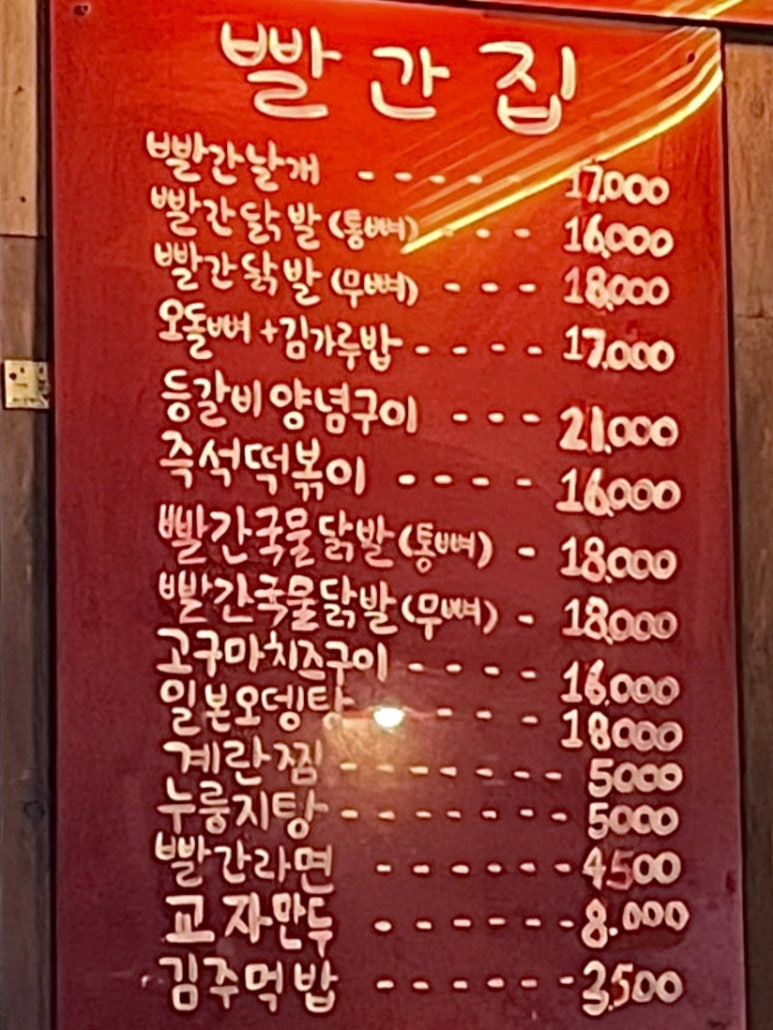 빨간집
빨간날개 ----- 17.000
빨간닭발(통뼈) --- 16.000
빨간닭발(무뼈) --- 18.000
오돌뼈+김가루밥 ---- 17.000
등갈비양념구이 --- 21.000
즉석떡볶이 ---- 16.000
빨간국물닭발(통뼈) - 18.000
빨간국물닭발(무뼈) - 18.000
고구마치즈구이 ---- 16.000
일본오뎅탕 ---- 18000
계란찜 ------- 5000
누룽지탕 ------- 5000
빨간라면 ------ 4500
교자만두 ------ 8.000
김주먹밥 ------ 3.500